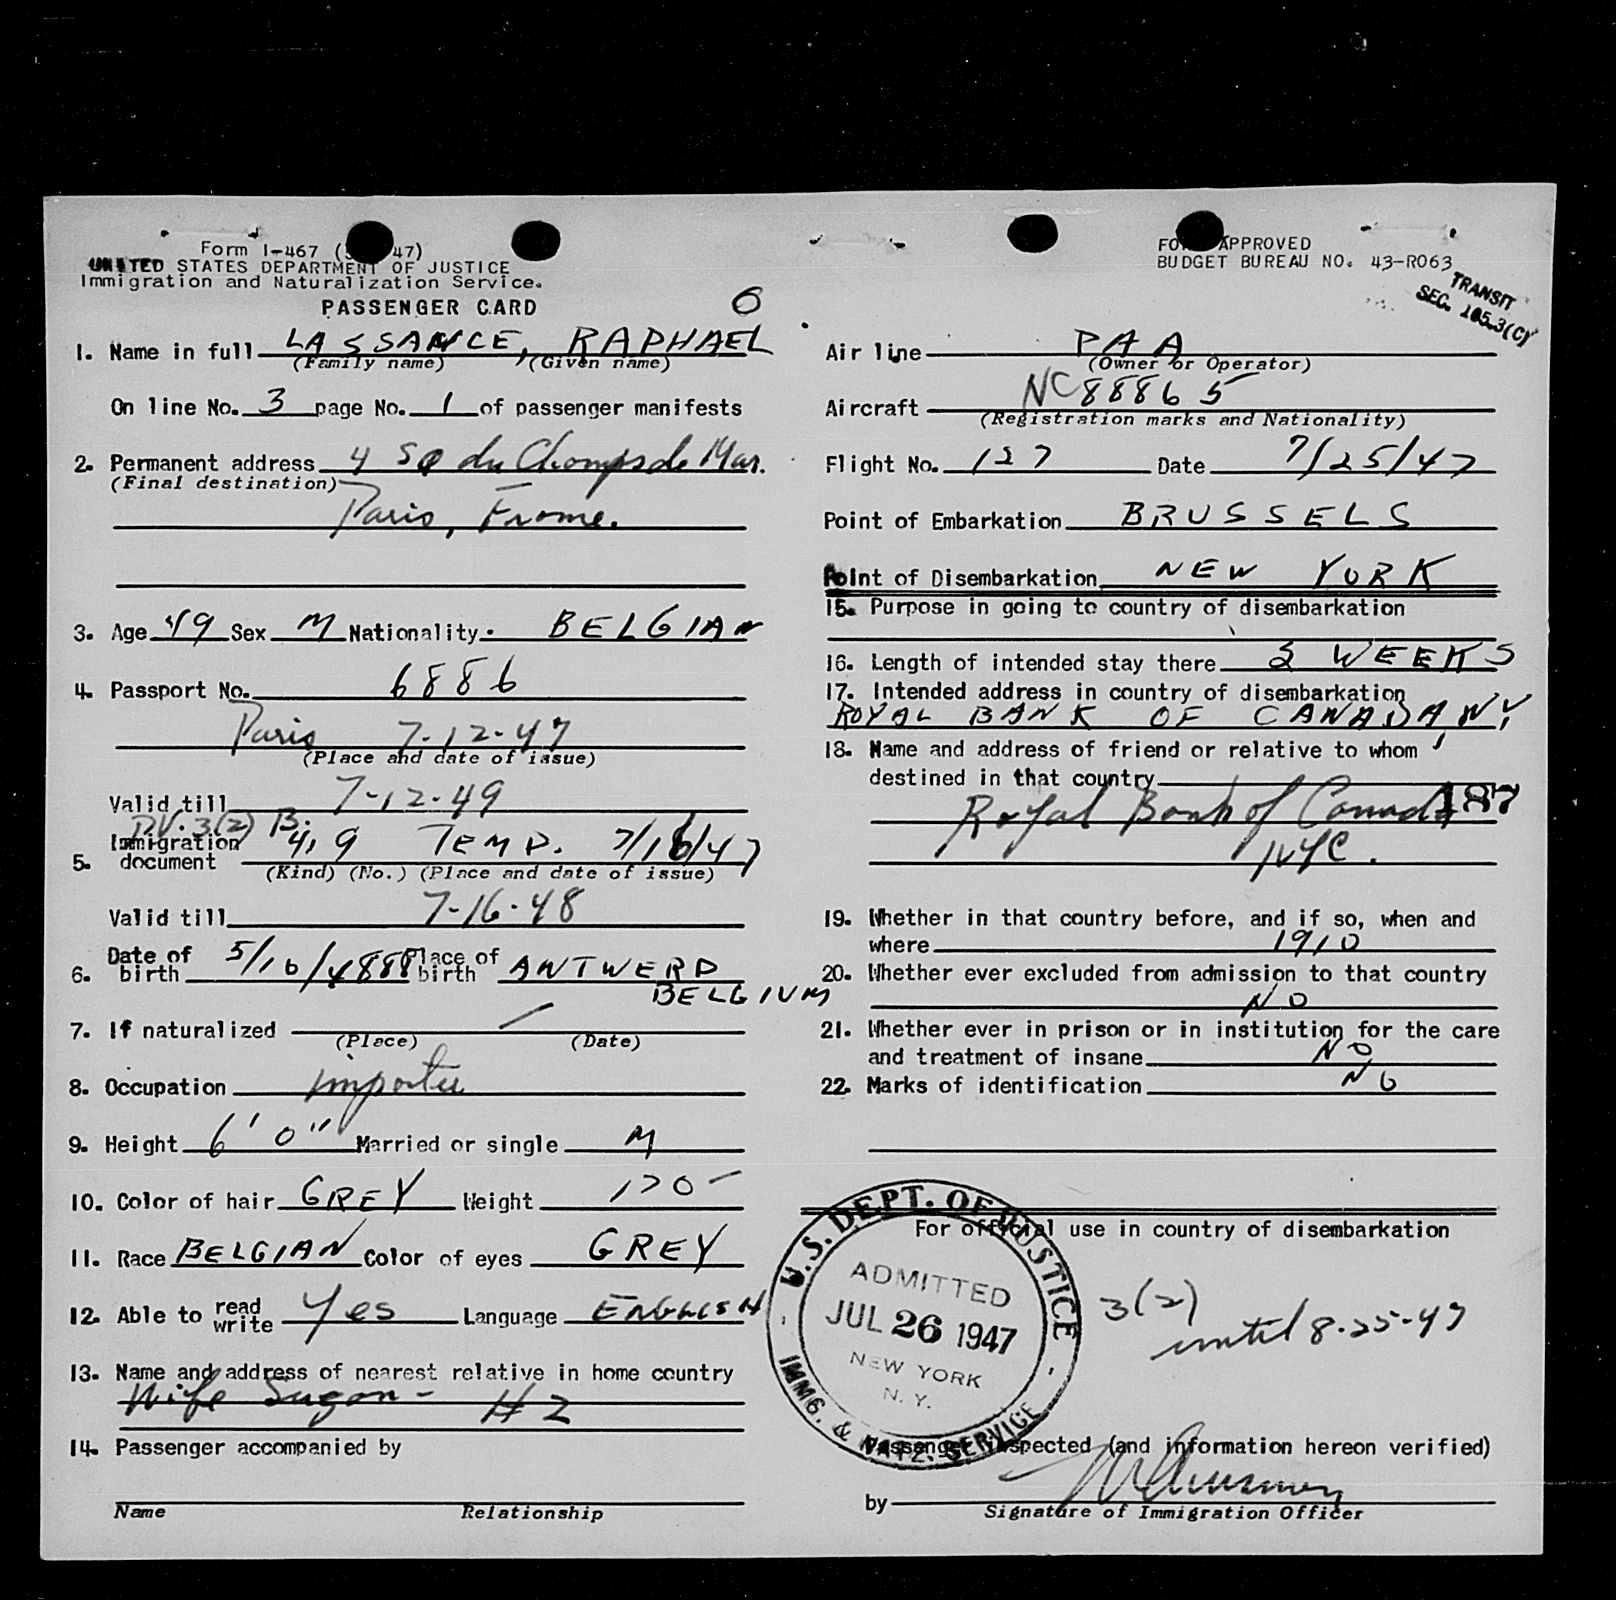 Form I-467 ( 47)
UNITED STATES DEPARTMENT OF JUSTICE
Immigration and Naturalization Service.
PASSENGER CARD
6
1. Name in full LASSANCE, RAPHAEL
(Family name) (Given name)
On line No. 3 page No. 1 of passenger manifests
2. Permanent address 4 Sq du Champs de Mar.
(Final destination)
Paris, France.
3. Age 49 Sex M Nationality. BELGIAN
4. Passport No. 6886
Paris 7-12-47
(Place and date of issue)
Valid till 7-12-49
PV. 3(2) B.
5. Immigration document 419 TEMP. 7/16/47
(Kind) (No.) (Place and date of issue)
Valid till 7-16-48
6. Date of birth 5/10/1888 Place of birth ANTWERP
BELGIUM
7. If naturalized
(Place) (Date)
8. Occupation importer
9. Height 6'0" Married or single M
10. Color of hair GREY Weight 170-
11. Race BELGIAN Color of eyes GREY
12. Able to read write Yes Language ENGLISH
13. Name and address of nearest relative in home country
Wife - #2
14. Passenger accompanied by
Name Relationship
FORM APPROVED
BUDGET BUREAU NO. 43-R063
TRANSIT
SEC. 105.3(C)
Air line PAA
(Owner or Operator)
Aircraft NC88865
(Registration marks and Nationality)
Flight No. 127 Date 7/25/47
Point of Embarkation BRUSSELS
Point of Disembarkation NEW YORK
15. Purpose in going to country of disembarkation
16. Length of intended stay there 2 WEEKS
17. Intended address in country of disembarkation
ROYAL BANK OF CANADA, NY
18. Name and address of friend or relative to whom
destined in that country
Royal Bank of Canada 187
NYC.
19. Whether in that country before, and if so, when and
where 1910
20. Whether ever excluded from admission to that country
NO
21. Whether ever in prison or in institution for the care
and treatment of insane NO
22. Marks of identification NO
For official use in country of disembarkation
U.S. DEPT. OF JUSTICE
ADMITTED
JUL 26 1947
NEW YORK
N. Y.
IMMG. & NATZ. SERVICE
3(2)
until 8-25-47
Passenger inspected (and information hereon verified)
by
Signature of Immigration Officer